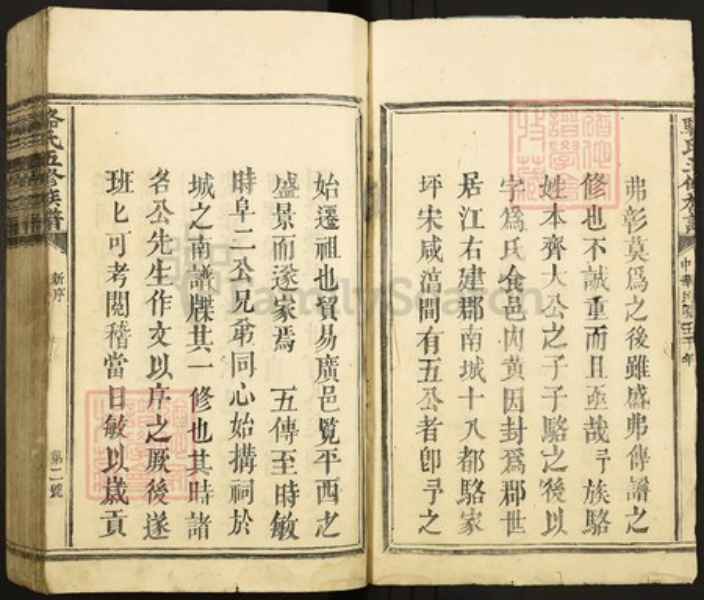 弗彰莫爲之後雖盛弗傳譜之
修也不誠重而且亟哉予族駱
姓本齊大公之子子駱之後以
字爲氏食邑内黄因封爲郡世
居江右建郡南城十八都駱家
坪宋咸淳間有五公者卽予之
始遷祖也貿易廣邑覽平西之
盛景而遂家焉 五傳至時敏
時阜二公兄弟同心始搆祠於
城之南譜牒其一修也其時諸
名公先生作文以序之厥後遂
班匕可考閱稽當日敏以歲貢
駱氏五修族譜
新序
第二號